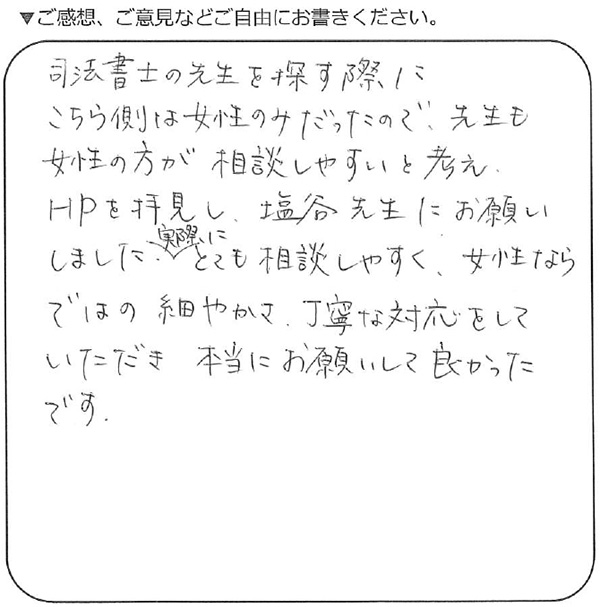 ▼ご感想、ご意見などご自由にお書きください。
司法書士の先生を探す際に
こちら側は女性のみだったので、先生も
女性の方が相談しやすいと考え、
HPを拝見し、塩谷先生にお願い
しました。実際にとても相談しやすく、女性なら
ではの細やかさ、丁寧な対応をして
いただき 本当にお願いして良かった
です。